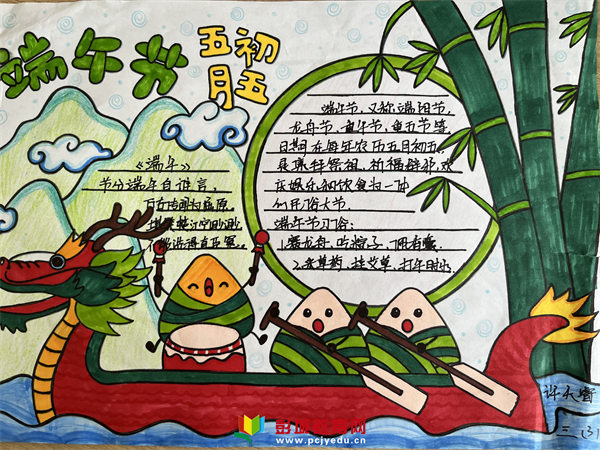 端午节
五月初五
《端午》
节分端午自谁言，
万古传闻为屈原。
堪笑楚江空渺渺，
不能洗得直臣冤。
端午节，又称端阳节，
龙舟节、重午节、重五节等，
日期在每年农历五月初五，
是集拜祭祖、祈福辟邪、欢
庆娱乐和饮食为一体
的民俗大节。
端午节习俗：
1.赛龙舟、吃粽子、佩香囊
2.采草药、挂艾草、打午时水
三（3）
www.pcjyedu.cn